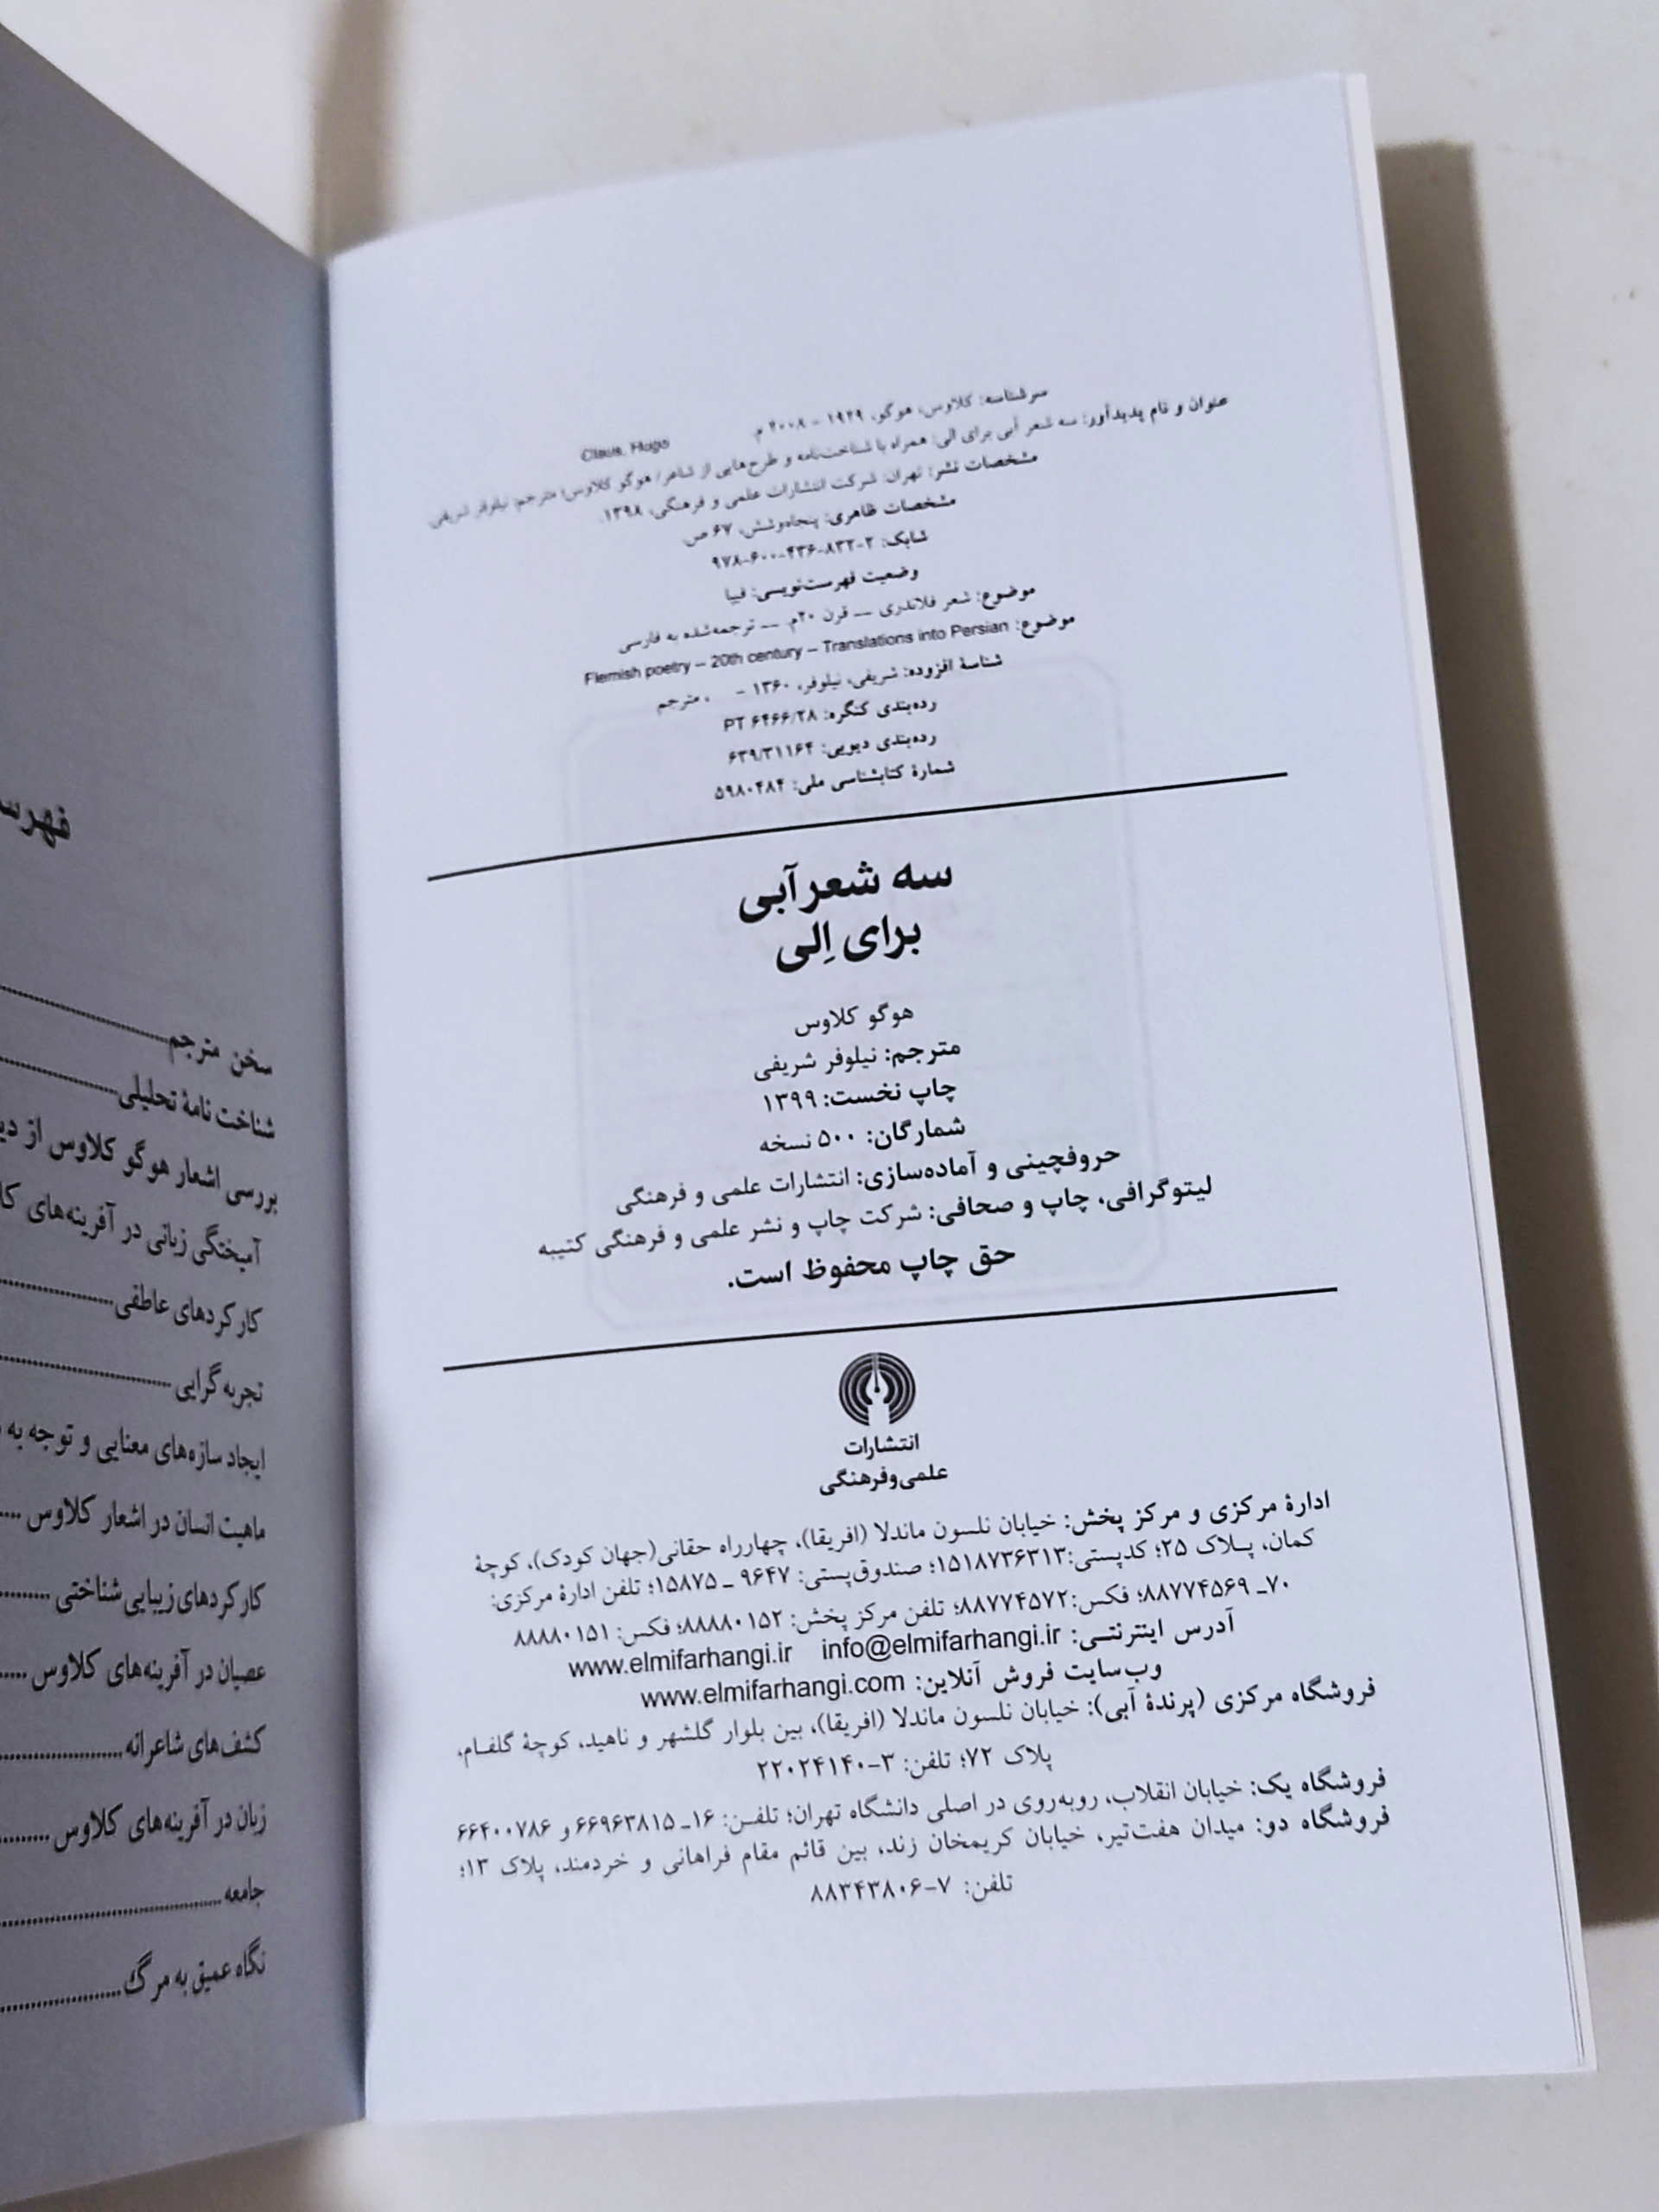 سرشناسه: کلاوس، هوگو، ۱۹۲۹ - ۲۰۰۸ م. Claus, Hugo
عنوان و نام پدیدآور: سه شعر آبی برای الی: همراه با شناخت‌نامه و طرح‌هایی از شاعر/ هوگو کلاوس؛ مترجم: نیلوفر شریفی.
مشخصات نشر: تهران: شرکت انتشارات علمی و فرهنگی، ۱۳۹۸.
مشخصات ظاهری: پنجاه‌وشش، ۶۷ ص.
شابک: ۲-۸۳۲-۴۳۶-۶۰۰-۹۷۸
وضعیت فهرست‌نویسی: فیپا
موضوع: شعر فلاندری -- قرن ۲۰م. -- ترجمه‌شده به فارسی
موضوع: Flemish poetry – 20th century – Translations into Persian
شناسهٔ افزوده: شریفی، نیلوفر، ۱۳۶۰ - ، مترجم
رده‌بندی کنگره: PT ۶۴۶۶/۲۸
رده‌بندی دیویی: ۶۳۹/۳۱۱۶۴
شمارهٔ کتابشناسی ملی: ۵۹۸۰۴۸۴
سه شعر آبی
برای اِلی
هوگو کلاوس
مترجم: نیلوفر شریفی
چاپ نخست: ۱۳۹۹
شمارگان: ۵۰۰ نسخه
حروفچینی و آماده‌سازی: انتشارات علمی و فرهنگی
لیتوگرافی، چاپ و صحافی: شرکت چاپ و نشر علمی و فرهنگی کتیبه
حق چاپ محفوظ است.
انتشارات
علمی‌وفرهنگی
ادارهٔ مرکزی و مرکز پخش: خیابان نلسون ماندلا (افریقا)، چهارراه حقانی(جهان کودک)، کوچهٔ
کمان، پلاک ۲۵؛ کدپستی:۱۵۱۸۷۳۶۳۱۳؛ صندوق‌پستی: ۹۶۴۷ ـ ۱۵۸۷۵؛ تلفن ادارهٔ مرکزی:
۷۰ـ ۸۸۷۷۴۵۶۹؛ فکس:۸۸۷۷۴۵۷۲؛ تلفن مرکز پخش: ۸۸۸۸۰۱۵۲؛ فکس: ۸۸۸۸۰۱۵۱
آدرس اینترنتی: info@elmifarhangi.ir www.elmifarhangi.ir
وب‌سایت فروش آنلاین: www.elmifarhangi.com
فروشگاه مرکزی (پرندهٔ آبی): خیابان نلسون ماندلا (افریقا)، بین بلوار گلشهر و ناهید، کوچهٔ گلفام،
پلاک ۷۲؛ تلفن: ۳-۲۲۰۲۴۱۴۰
فروشگاه یک: خیابان انقلاب، روبه‌روی در اصلی دانشگاه تهران؛ تلفن: ۱۶ـ ۶۶۹۶۳۸۱۵ و ۶۶۴۰۰۷۸۶
فروشگاه دو: میدان هفت‌تیر، خیابان کریمخان زند، بین قائم مقام فراهانی و خردمند، پلاک ۱۳؛
تلفن: ۷-۸۸۳۴۳۸۰۶
سخن مترجم
شناخت نامهٔ تحلیلی
بررسی اشعار هوگو کلاوس از
آمیختگی زبانی در آفرینه‌های
کارکردهای عاطفی
تجربه گرایی
ایجاد سازه‌های معنایی و توجه به
ماهیت انسان در اشعار کلاوس
کارکردهای زیبایی‌شناختی
عصیان در آفرینه‌های کلاوس
کشف‌های شاعرانه
زبان در آفرینه‌های کلاوس
جامعه
نگاه عمیق به مرگ